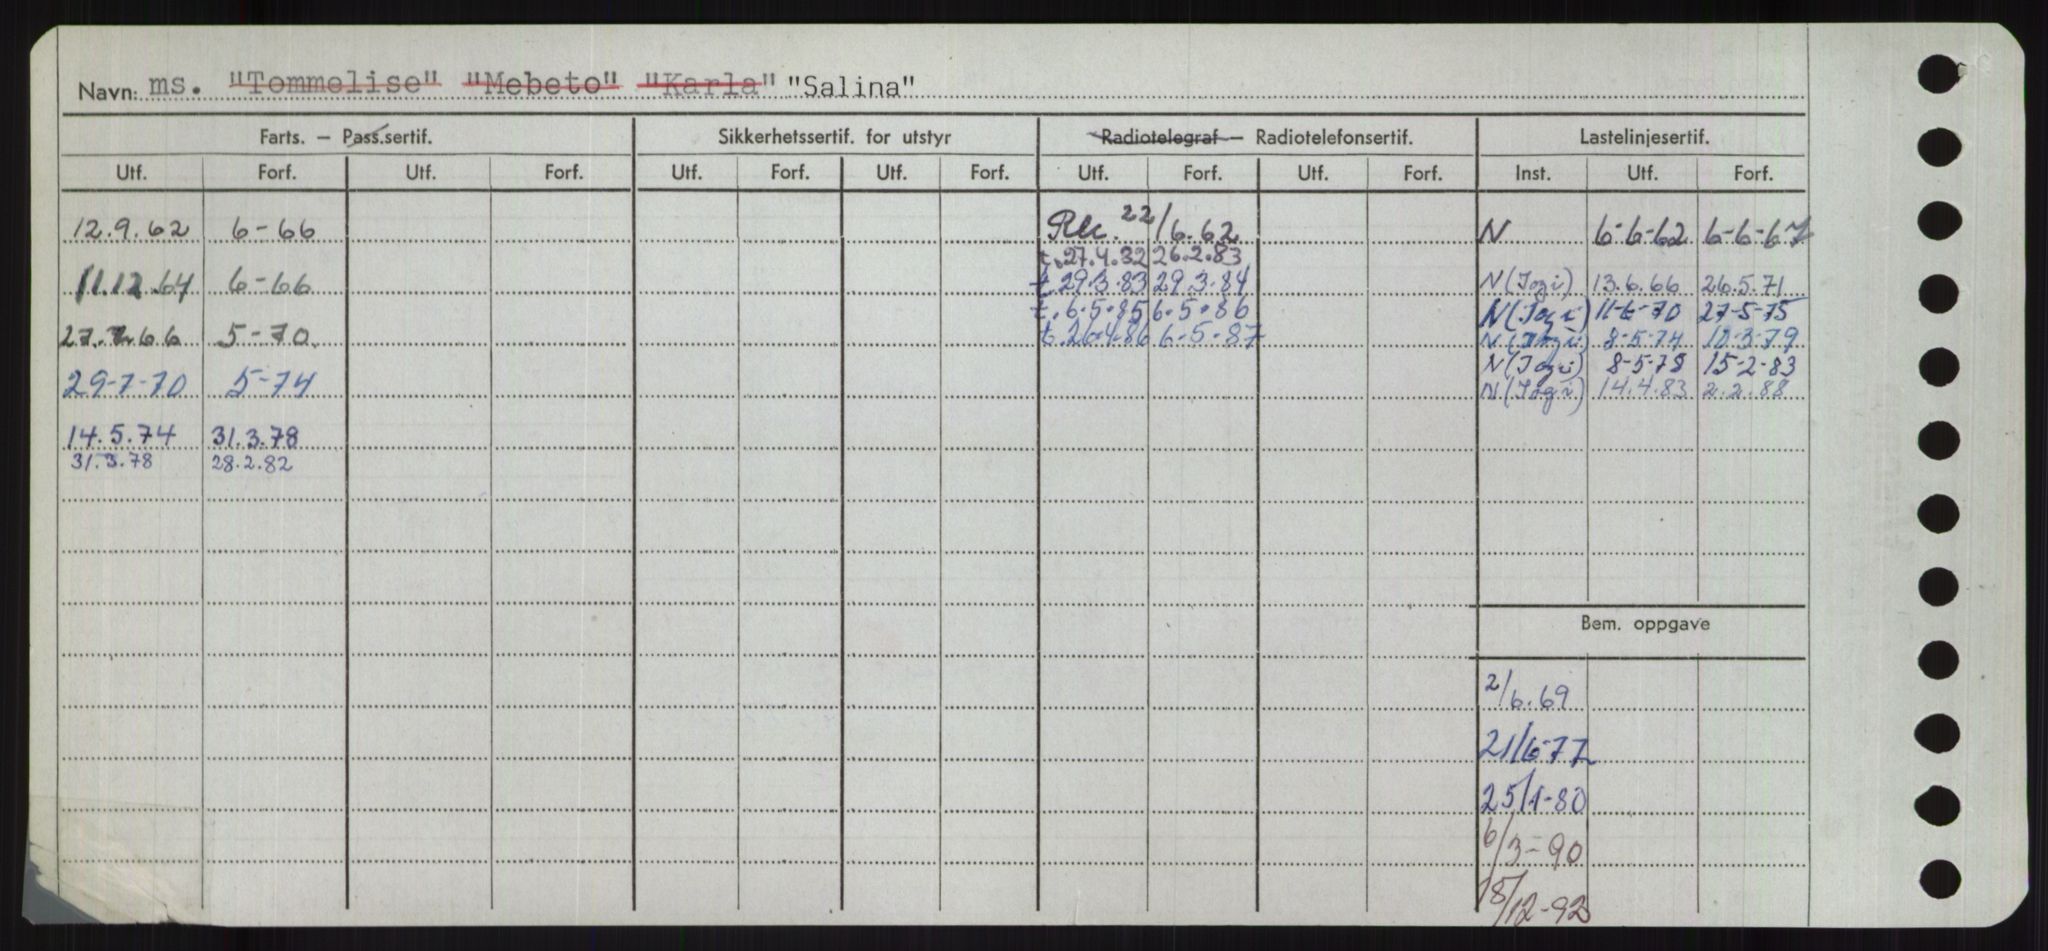 Navn: ms. "Tommelise" "Mebeto" "Karla" "Salina"
Farts. — Pass.sertif. Sikkerhetssertif. for utstyr Radiotelegraf — Radiotelefonsertif. Lastelinjesertif.
Utf. Forf. Utf. Forf. Utf. Forf. Utf. Forf. Utf. Forf. Utf. Forf. Inst. Utf. Forf.
12.9.62 6-66 22/6.62 N 6-6-62 6-6-67
t. 27.4.32 26.2.83
11.12.64 6-66 t. 29.3.83 29.3.84 N (Iogi) 13.6.66 26.5.71
t. 6.5.85 6.5.86 N (Iogi) 11-6-70 27-5-75
27. 66 5-70. t. 26.4.86 6.5.87 N (Iogi) 8-5-74 10-3-79
N (Iogi) 8-5-78 15-2-83
29-7-70 5-74 N (Iogi) 14.4.83 2.2.88
14.5.74 31.3.78
31.3.78 28.2.82
Bem. oppgave
2/6.69
21/6-77
25/1-80
6/3-90
18/12-92